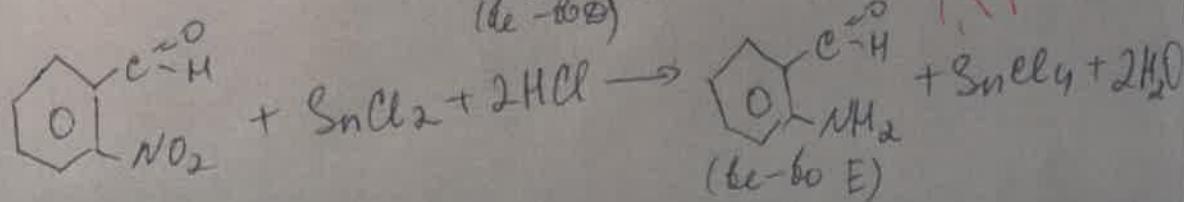 (в-во D)
C=O
-H
NO₂ + SnCl₂ + 2HCl → C=O
-H
NH₂ + SnCl₄ + 2H₂O
(в-во E)